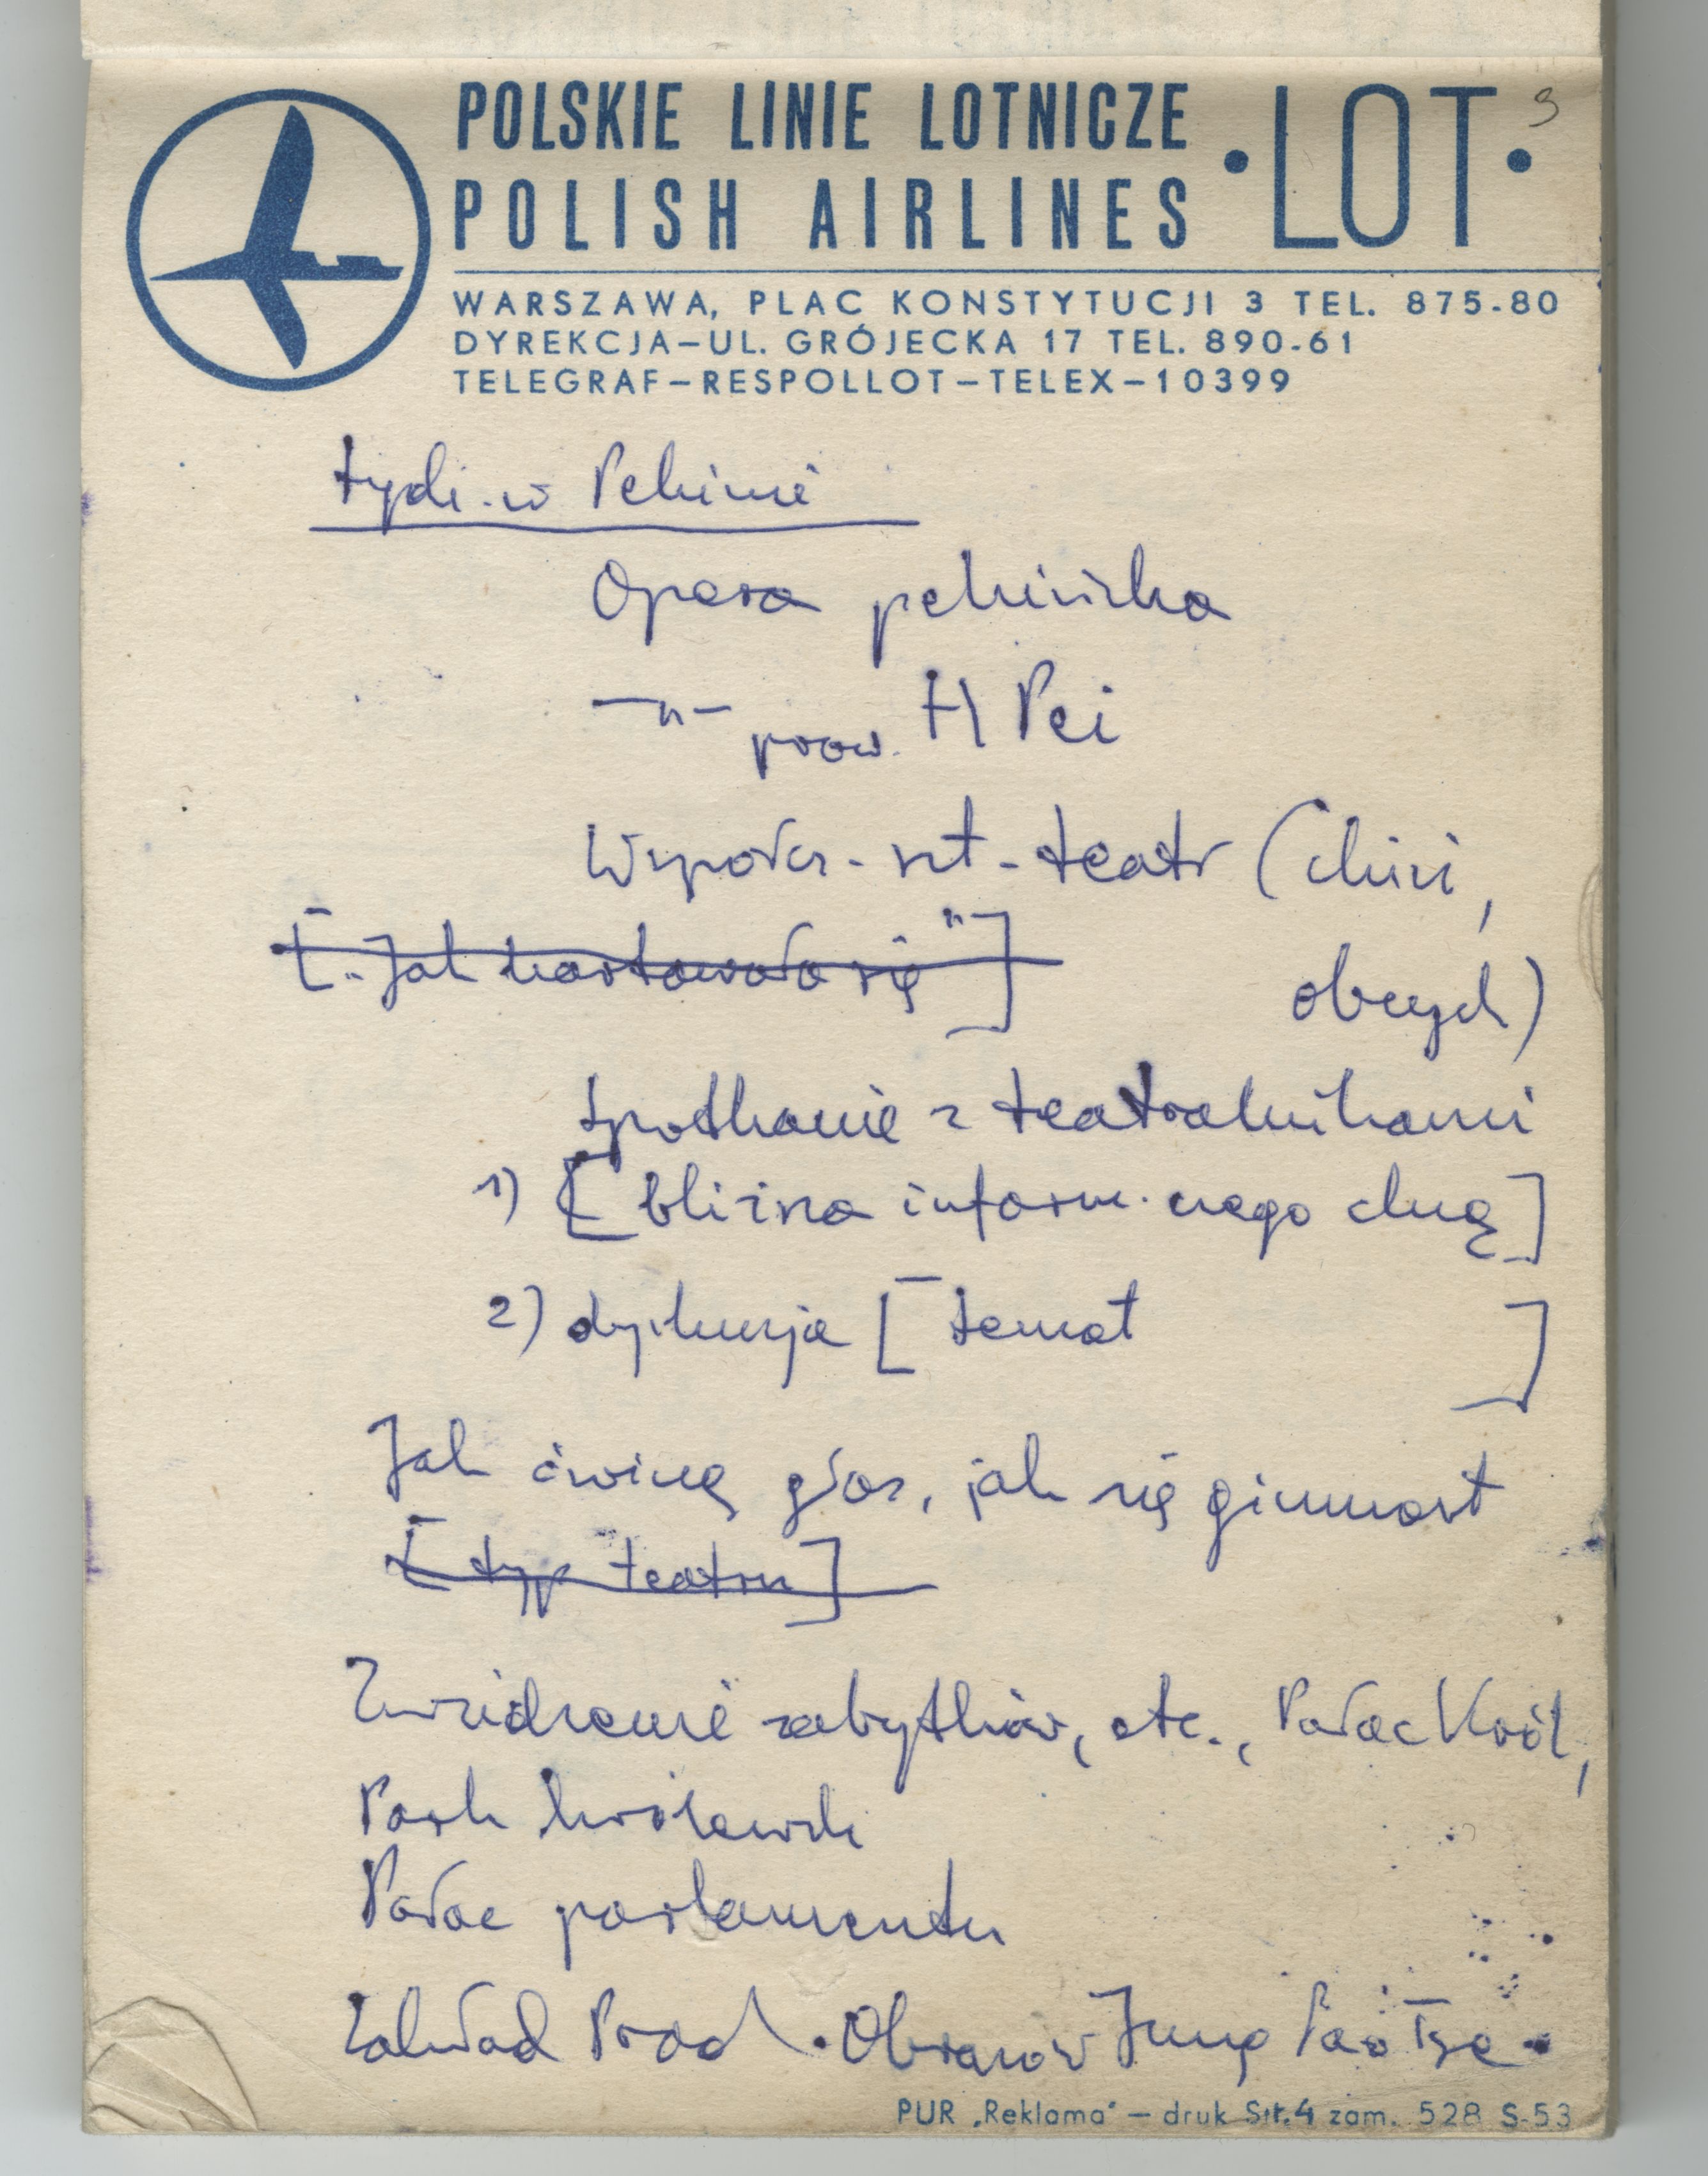 POLSKIE LINIE LOTNICZE
POLISH AIRLINES
·LOT·
3
WARSZAWA, PLAC KONSTYTUCJI 3 TEL. 875-80
DYREKCJA–UL. GRÓJECKA 17 TEL. 890-61
TELEGRAF–RESPOLLOT–TELEX–10399
tydz. w Pekinie
Opera pekińska
—"— prow. H Pei
Współcz. szt. teatr (chiń,
[„Jak hartowała się"]
obcych)
Spotkanie z teatralnikami
1) [bliższa inform. czego chcę]
2) dyskusja [temat ]
Jak ćwiczą głos, jak się gimnast
[typ teatru]
Zwiedzenie zabytków, etc., Pałac Król,
Park królewsk
Pałac parlamentu
Zakład Prod. Obrazów Jung Pao Tse
PUR „Reklama" – druk Str.4 zam. 528 S-53